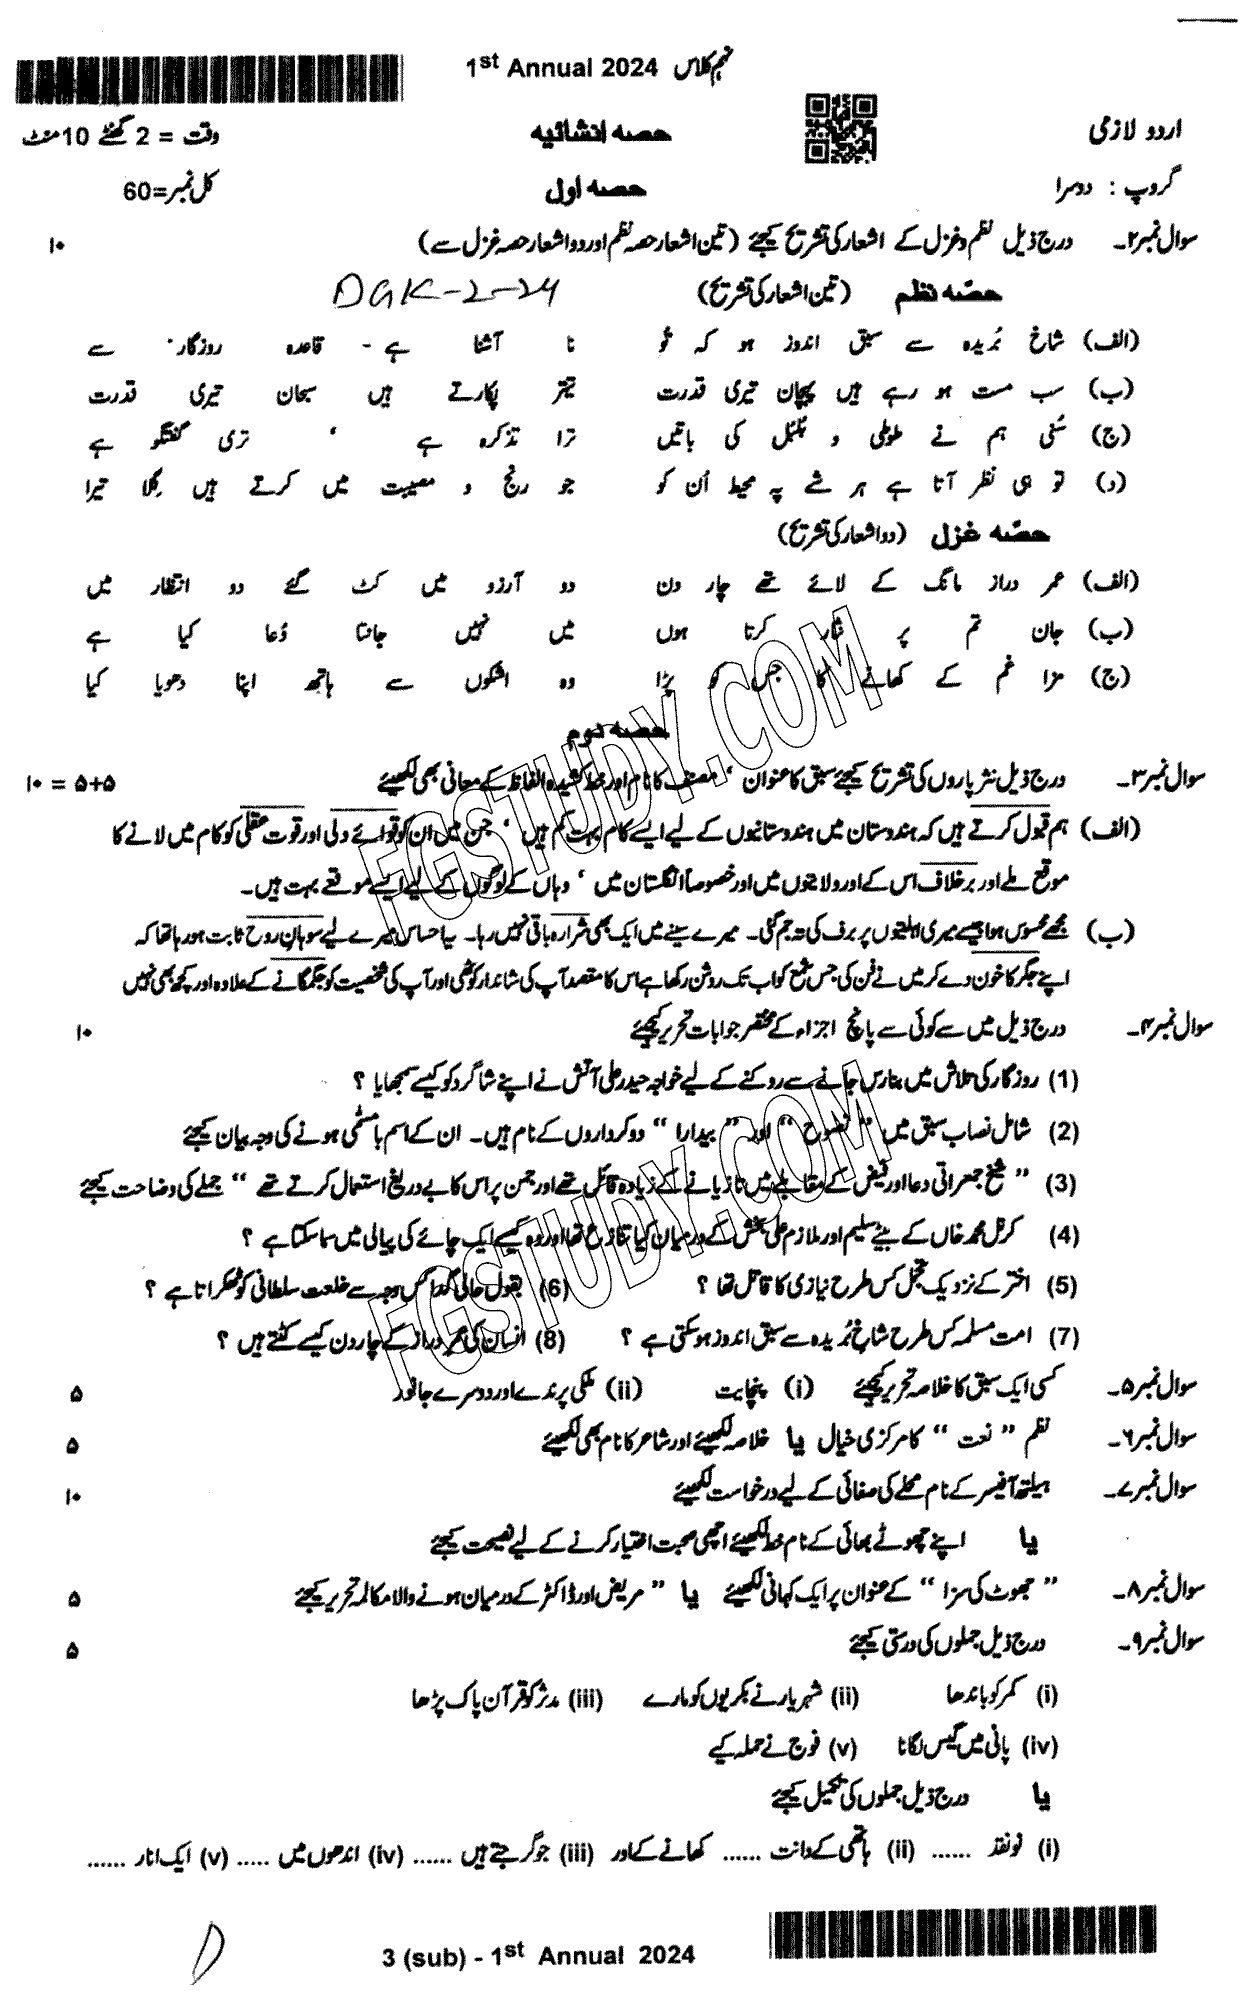 نہم کلاس 1st Annual 2024
اردو لازمی حصہ انشائیہ وقت = 2 گھنٹے 10 منٹ
گروپ : دوسرا حصہ اول کل نمبر=60
سوال نمبر۲۔ درج ذیل نظم و غزل کے اشعار کی تشریح کیجئے (تین اشعار حصہ نظم اور دو اشعار حصہ غزل سے) ۱۰
حصّہ نظم (تین اشعار کی تشریح) DGK-2-24
(الف) شاخ بُریدہ سے سبق اندوز ہو کہ تُو نا آشنا ہے قاعدہ روزگار سے
(ب) سب مست ہو رہے ہیں پہچان تیری قدرت تیتر پکارتے ہیں سبحان تیری قدرت
(ج) سُنی ہم نے طوطی و بُلبُل کی باتیں ترا تذکرہ ہے ، تری گفتگو ہے
(د) تو ہی نظر آتا ہے ہر شے پہ محیط اُن کو جو رنج و مصیبت میں کرتے ہیں گِلا تیرا
حصّہ غزل (دو اشعار کی تشریح)
(الف) عمر دراز مانگ کے لائے تھے چار دن دو آرزو میں کٹ گئے دو انتظار میں
(ب) جان تم پر نثار کرتا ہوں میں نہیں جانتا دُعا کیا ہے
(ج) مزا غم کے کھانے کا جس کو پڑا وہ اشکوں سے ہاتھ اپنا دھویا کیا
حصہ دوم
سوال نمبر۳۔ درج ذیل نثر پاروں کی تشریح کیجئے سبق کا عنوان ، مصنف کا نام اور خط کشیدہ الفاظ کے معانی بھی لکھیئے ۵+۵ = ۱۰
(الف) ہم قبول کرتے ہیں کہ ہندوستان میں ہندوستانیوں کے لیے ایسے کام بہت کم ہیں ، جن میں ان کو قوائے دلی اور قوت عقلی کو کام میں لانے کا
موقع ملے اور برخلاف اس کے اور ولایتوں میں اور خصوصاً انگلستان میں ، وہاں کے لوگوں کے لیے ایسے موقعے بہت ہیں۔
(ب) مجھے محسوس ہوا جیسے میری اہلیتوں پر برف کی تہ جم گئی۔ میرے سینے میں ایک بھی شرارہ باقی نہیں رہا۔ یہ احساس میرے لیے سوہانِ روح ثابت ہو رہا تھا کہ
اپنے جگر کا خون دے کر میں نے فن کی جس شمع کو اب تک روشن رکھا ہے اس کا مقصد آپ کی شاندار کوٹھی اور آپ کی شخصیت کو جگمگانے کے علاوہ اور کچھ بھی نہیں
سوال نمبر۴۔ درج ذیل میں سے کوئی سے پانچ اجزاء کے مختصر جوابات تحریر کیجیئے ۱۰
(1) روزگار کی تلاش میں بنارس جانے سے روکنے کے لیے خواجہ حیدر علی آتش نے اپنے شاگرد کو کیسے سمجھایا ؟
(2) شامل نصاب سبق میں " نصوح " اور " بیدارا " دو کرداروں کے نام ہیں۔ ان کے اسم بامسمّٰی ہونے کی وجہ بیان کیجئے
(3) " شیخ جمعراتی دعا اور فیض کے مقابلے میں تازیانے کے زیادہ قائل تھے اور جمن پر اس کا بے دریغ استعمال کرتے تھے " جملے کی وضاحت کیجئے
(4) کرنل محمد خاں کے بیٹے سلیم اور ملازم علی بخش کے درمیان کیا تنازع تھا اور وہ کیسے ایک چائے کی پیالی میں سما سکتا ہے ؟
(5) اختر کے نزدیک تجمل کس طرح نیازی کا قاتل تھا ؟ (6) بقول حالی گدا کس وجہ سے خلعت سلطانی کو ٹھکراتا ہے ؟
(7) امت مسلمہ کس طرح شاخ بُریدہ سے سبق اندوز ہو سکتی ہے ؟ (8) انسان کی عمر دراز کے چار دن کیسے کٹتے ہیں ؟
سوال نمبر۵۔ کسی ایک سبق کا خلاصہ تحریر کیجیئے (i) پنچایت (ii) ملکی پرندے اور دوسرے جانور ۵
سوال نمبر۶۔ نظم " نعت " کا مرکزی خیال یا خلاصہ لکھیئے اور شاعر کا نام بھی لکھیئے ۵
سوال نمبر۷۔ ہیلتھ آفیسر کے نام محلے کی صفائی کے لیے درخواست لکھیئے ۱۰
یا اپنے چھوٹے بھائی کے نام خط لکھیئے اچھی صحبت اختیار کرنے کے لیے نصیحت کیجئے
سوال نمبر۸۔ " جھوٹ کی سزا " کے عنوان پر ایک کہانی لکھیئے یا " مریض اور ڈاکٹر کے درمیان ہونے والا مکالمہ تحریر کیجئے ۵
سوال نمبر۹۔ درج ذیل جملوں کی درستی کیجئے ۵
(i) کمر کو باندھا (ii) شہریار نے بکریوں کو مارے (iii) مدثر کو قرآن پاک پڑھا
(iv) پانی میں گیس لگانا (v) فوج نے حملہ کیے
یا درج ذیل جملوں کی تکمیل کیجئے
(i) نو نقد ...... (ii) ہاتھی کے دانت ...... کھانے کے اور (iii) جو گرجتے ہیں ...... (iv) اندھوں میں ..... (v) ایک انار ......
D
3 (sub) - 1st Annual 2024
FGSTUDY.COM
FGSTUDY.COM